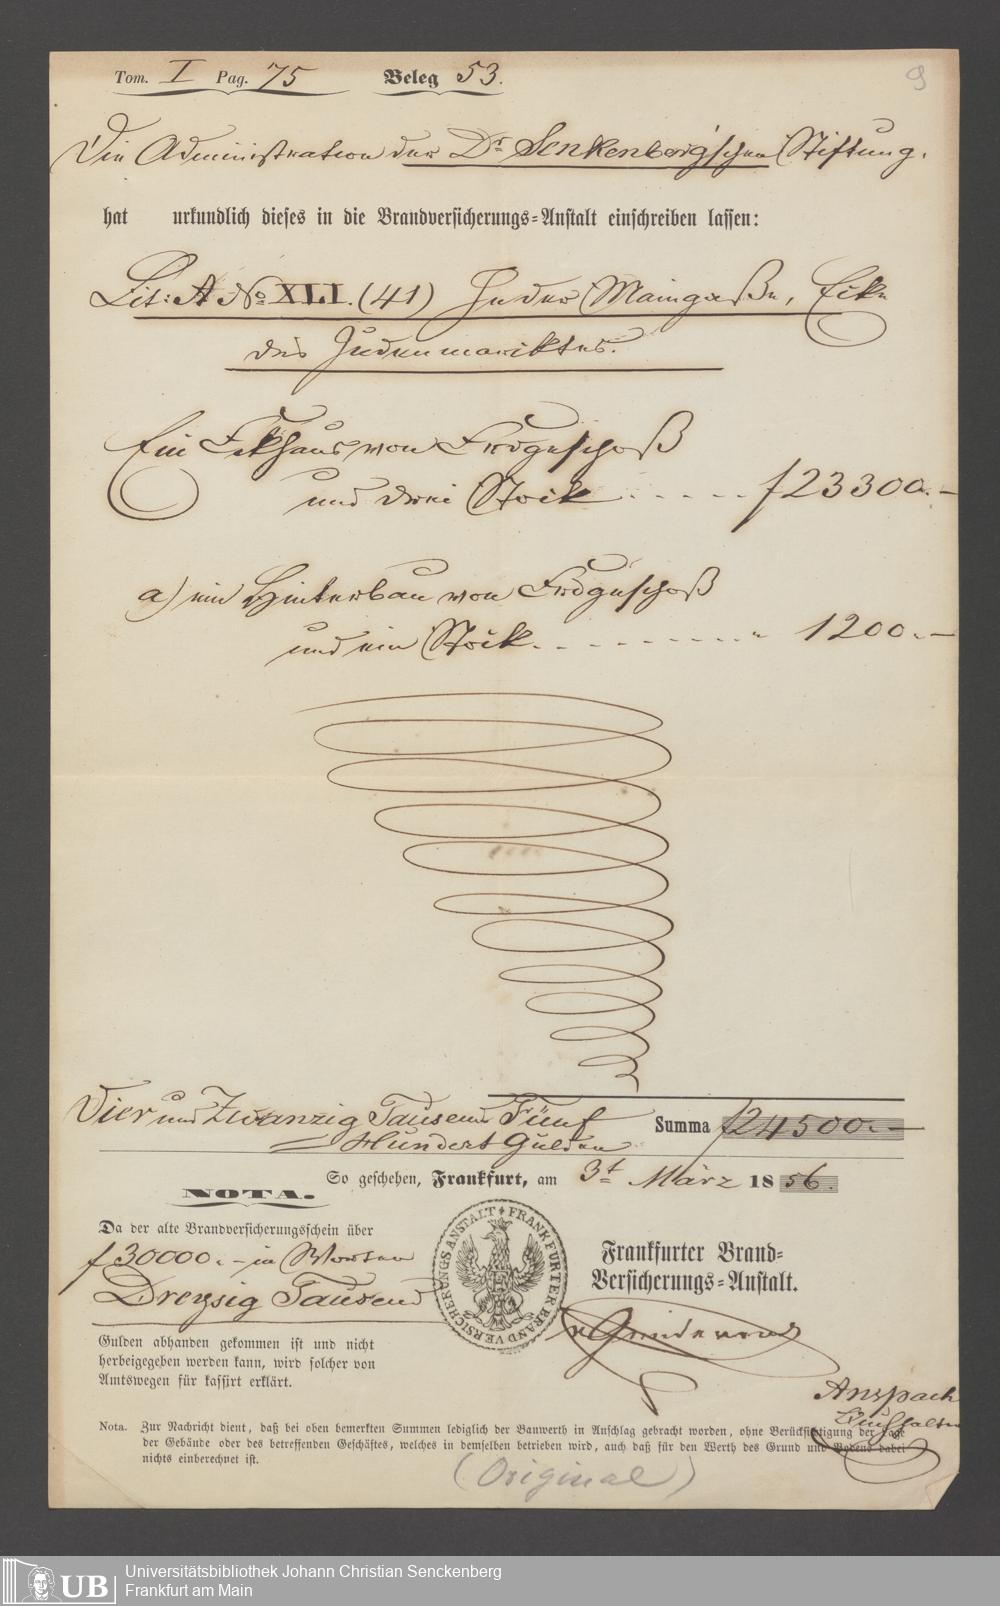 Tom. I Pag. 75 Beleg 53.
9
Die Administration der Dr. Senkenberg'schen Stiftung.
hat urkundlich dieses in die Brandversicherungs-Anstalt einschreiben lassen:
Lit: A No. XLI. (41) In der Maingaße, Ecke
des Judenmarktes.
Ein Ekhaus von Erdgeschoß
und drei Stock . . . . . f 23300.–
a) ein Hinterbau von Erdgeschoß
und ein Stock. . . . . . . . . " 1200.–
Vier und Zwanzig Tausend Fünf
Hundert Gulden
Summa f 24500.–
So geschehen, Frankfurt, am 3t. März 1856.
NOTA.
Da der alte Brandversicherungsschein über
f 30000.– in Worten
Dreysig Tausend
Gulden abhanden gekommen ist und nicht
herbeigegeben werden kann, wird solcher von
Amtswegen für kassirt erklärt.
FRANKFURTER BRANDVERSICHERUNGSANSTALT
Frankfurter Brand-
Versicherungs-Anstalt.
Anspach
Nota. Zur Nachricht dient, daß bei oben bemerkten Summen lediglich der Bauwerth in Anschlag gebracht worden, ohne Berücksichtigung der Lage
der Gebäude oder des betreffenden Geschäftes, welches in demselben betrieben wird, auch daß für den Werth des Grund und Bodens dabei
nichts einberechnet ist.
(Original)
UB
Universitätsbibliothek Johann Christian Senckenberg
Frankfurt am Main